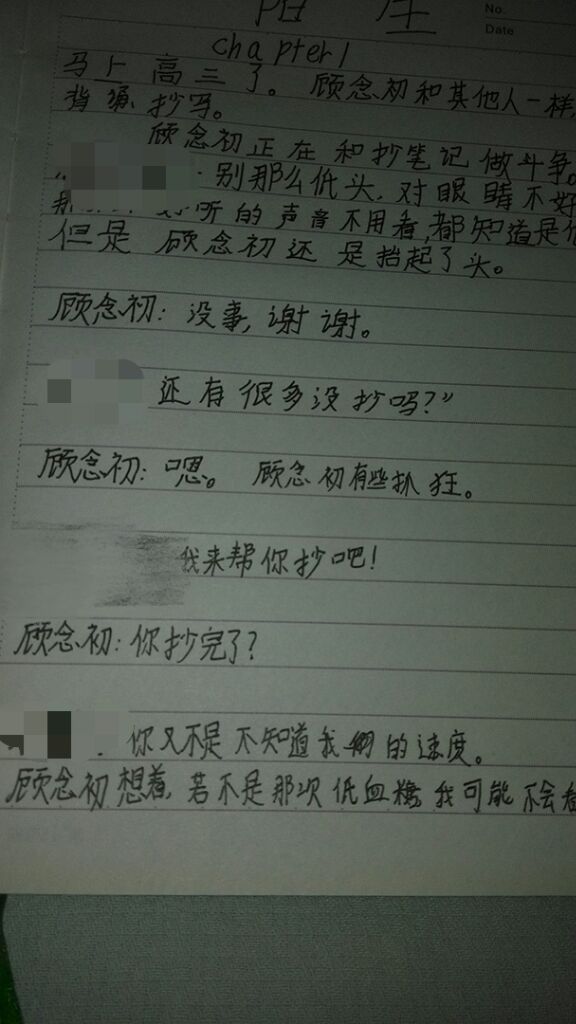 No.
Date
chapter1
马上高三了。顾念初和其他人一样,
背、抄写。
顾念初正在和抄笔记做斗争。
别那么低头,对眼睛不好
听的声音不用看,都知道是
但是顾念初还是抬起了头。
顾念初:没事,谢谢。
还有很多没抄吗?”
顾念初:嗯。顾念初有些抓狂。
我来帮你抄吧!
顾念初:你抄完了?
你又不是不知道我的速度。
顾念初想着,若不是那次低血糖,我可能不会